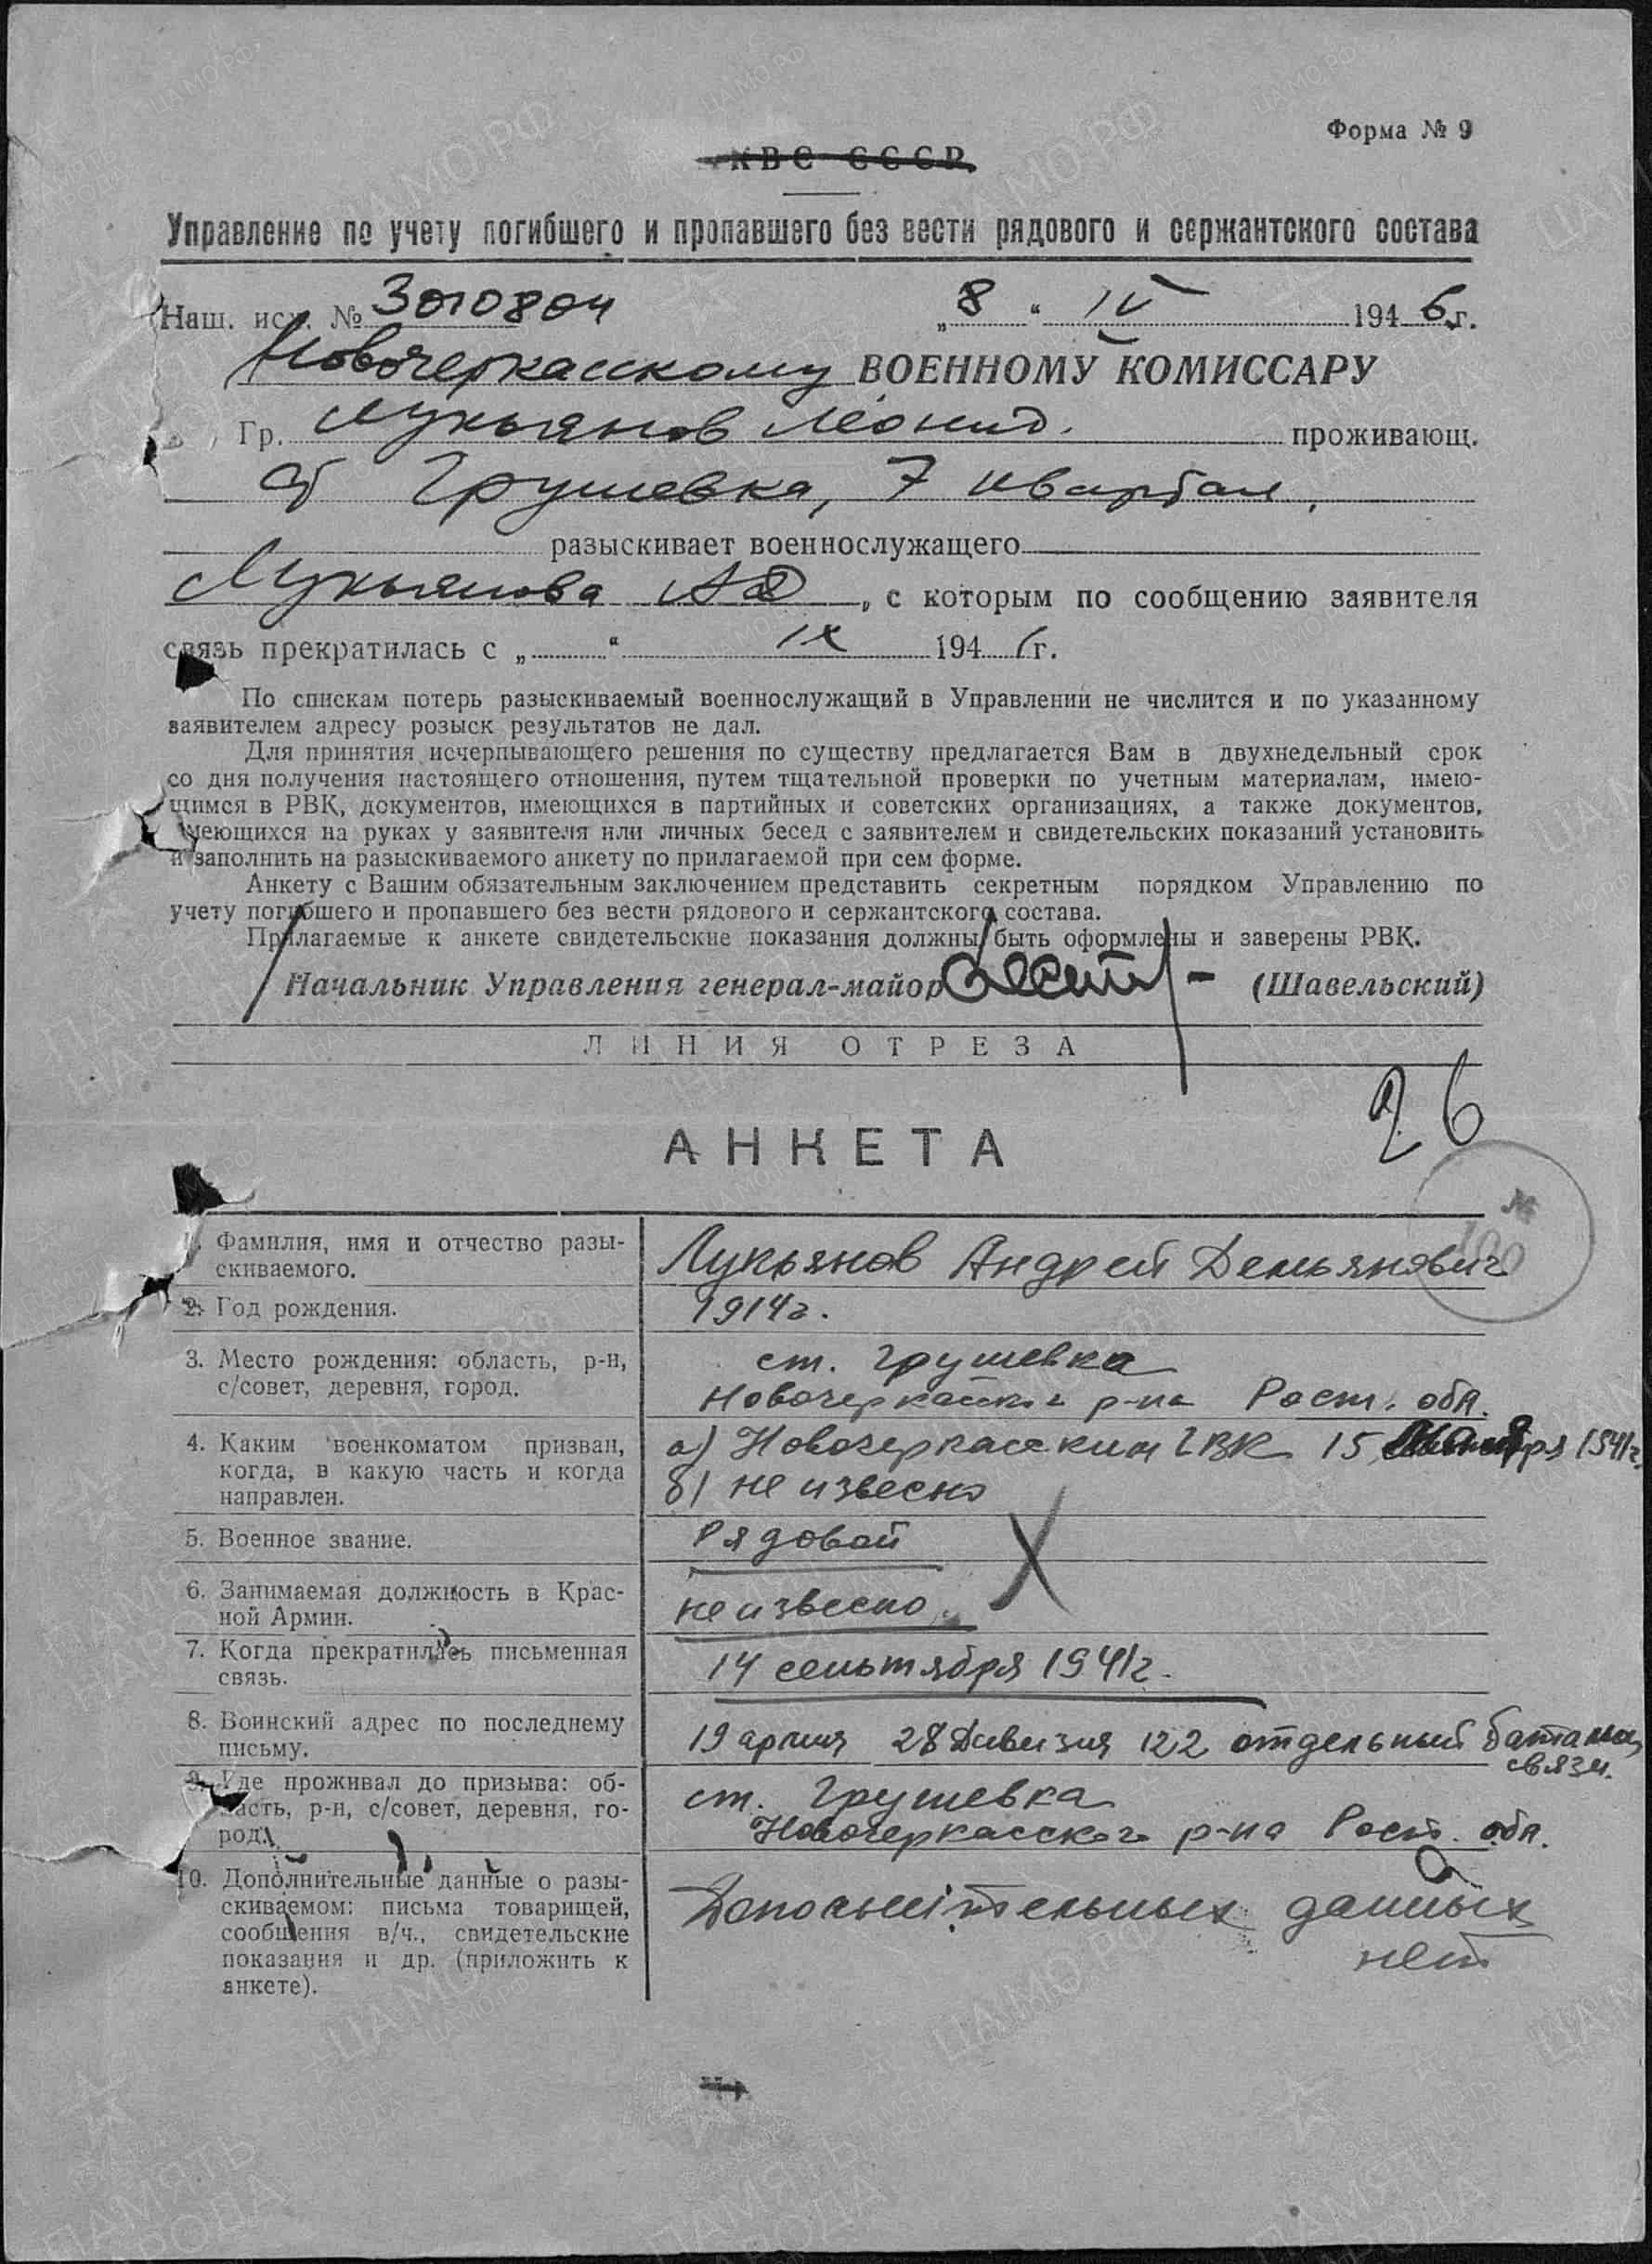 Форма № 9
КВС СССР
Управление по учету погибшего и пропавшего без вести рядового и сержантского состава
Наш. исх. № 3010804 „8“ IV 1946 г.
Новочеркасскому ВОЕННОМУ КОМИССАРУ
Гр. Лукьянов Леонид. проживающ.
ст Грушевка, 7 квартал,
разыскивает военнослужащего
Лукьянова АД, с которым по сообщению заявителя
связь прекратилась с „ “ IX 1941 г.
По спискам потерь разыскиваемый военнослужащий в Управлении не числится и по указанному
заявителем адресу розыск результатов не дал.
Для принятия исчерпывающего решения по существу предлагается Вам в двухнедельный срок
со дня получения настоящего отношения, путем тщательной проверки по учетным материалам, имею-
щимся в РВК, документов, имеющихся в партийных и советских организациях, а также документов,
имеющихся на руках у заявителя или личных бесед с заявителем и свидетельских показаний установить
и заполнить на разыскиваемого анкету по прилагаемой при сем форме.
Анкету с Вашим обязательным заключением представить секретным порядком Управлению по
учету погибшего и пропавшего без вести рядового и сержантского состава.
Прилагаемые к анкете свидетельские показания должны быть оформлены и заверены РВК.
Начальник Управления генерал-майор (Шавельский)
ЛИНИЯ ОТРЕЗА
26
АНКЕТА
№
190
1. Фамилия, имя и отчество разы-
скиваемого.
Лукьянов Андрей Демьянович
2. Год рождения.
1914г.
3. Место рождения: область, р-н,
с/совет, деревня, город.
ст. Грушевка
Новочеркасского р-на Рост. обл.
4. Каким военкоматом призван,
когда, в какую часть и когда
направлен.
а) Новочеркасским ГВК 15 1941г.
б) не извесно
5. Военное звание.
Рядовой
6. Занимаемая должность в Крас-
ной Армии.
не извесно
7. Когда прекратилась письменная
связь.
14 сентября 1941г.
8. Воинский адрес по последнему
письму.
19 армия 28 Дивизия 122 отдельный батальон
связи.
9. Где проживал до призыва: об-
ласть, р-н, с/совет, деревня, го-
род.
ст. Грушевка
Новочеркасского р-на Рост. обл.
10. Дополнительные данные о разы-
скиваемом: письма товарищей,
сообщения в/ч., свидетельские
показания и др. (приложить к
анкете).
Дополнительных данных
нет